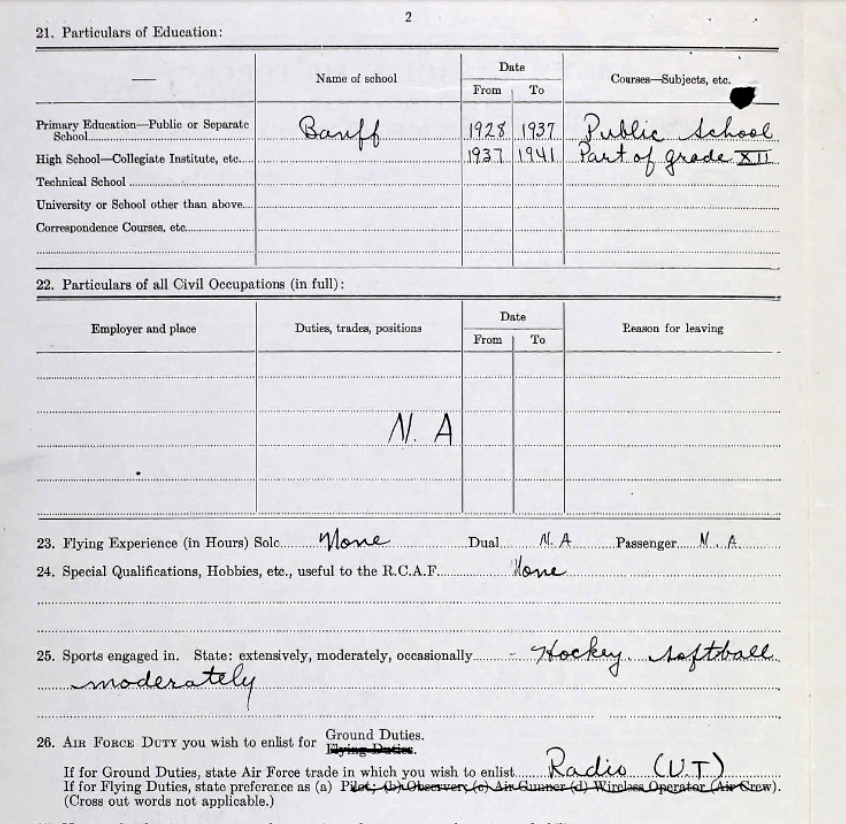 2
21. Particulars of Education:
Name of school
Date
Courses—Subjects, etc.
From To
Primary Education—Public or Separate
School Banff 1928 1937 Public School
High School—Collegiate Institute, etc. 1937 1941 Part of grade XII
Technical School
University or School other than above
Correspondence Courses, etc.
22. Particulars of all Civil Occupations (in full):
Employer and place Duties, trades, positions Date Reason for leaving
From To
N. A
23. Flying Experience (in Hours) Solo None Dual N. A Passenger N. A.
24. Special Qualifications, Hobbies, etc., useful to the R.C.A.F. None
25. Sports engaged in. State: extensively, moderately, occasionally - Hockey. Softball
moderately
26. AIR FORCE DUTY you wish to enlist for Ground Duties.
Flying Duties.
If for Ground Duties, state Air Force trade in which you wish to enlist Radio (U.T)
If for Flying Duties, state preference as (a) Pilot; (b) Observer, (c) Air Gunner (d) Wireless Operator (Air Crew).
(Cross out words not applicable.)